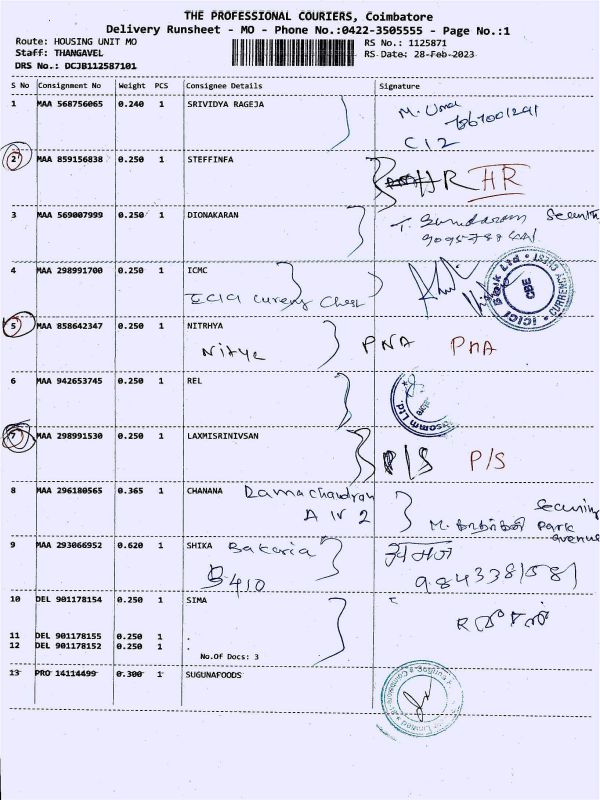 THE PROFESSIONAL COURIERS, Coimbatore
Delivery Runsheet - MO - Phone No.:0422-3505555 - Page No.:1
Route: HOUSING UNIT MO RS No.: 1125871
Staff: THANGAVEL RS Date: 28-Feb-2023
DRS No.: DCJB112587101
S No Consignment No Weight PCS Consignee Details Signature
1 MAA 568756065 0.240 1 SRIVIDYA RAGEJA M. Uma
C12
2 MAA 859156838 0.250 1 STEFFINFA HR HR
3 MAA 569007999 0.250 1 DIONAKARAN
4 MAA 298991700 0.250 1 ICMC
ICICI Bank Ltd CURRENCY CHEST CBE
5 MAA 858642347 0.250 1 NITRHYA
Nitya PNA PNA
6 MAA 942653745 0.250 1 REL
7 MAA 298991530 0.250 1 LAXMISRINIVSAN
P/S P/S
8 MAA 296180565 0.365 1 CHANANA Ramachandran
A IV 2 Park avenue
9 MAA 293066952 0.620 1 SHIKA Bakaria
B410 9843381581
10 DEL 901178154 0.250 1 SIMA
11 DEL 901178155 0.250 1 .
12 DEL 901178152 0.250 1 .
No.Of Docs: 3
13 PRO 14114499 0.300 1 SUGUNAFOODS